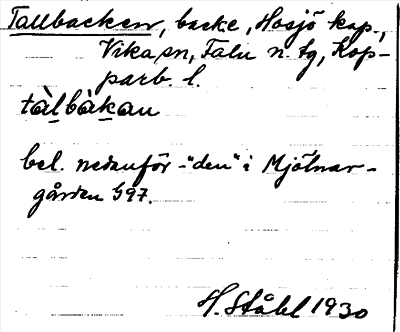 Tallbacken, backe, Hosjö kap.,
Vika sn, Falu n. tg, Kop-
parb. l.
tàlbàkan
bel. nedanför "den" i Mjölnar-
gården G97.
H. Ståhl 1930